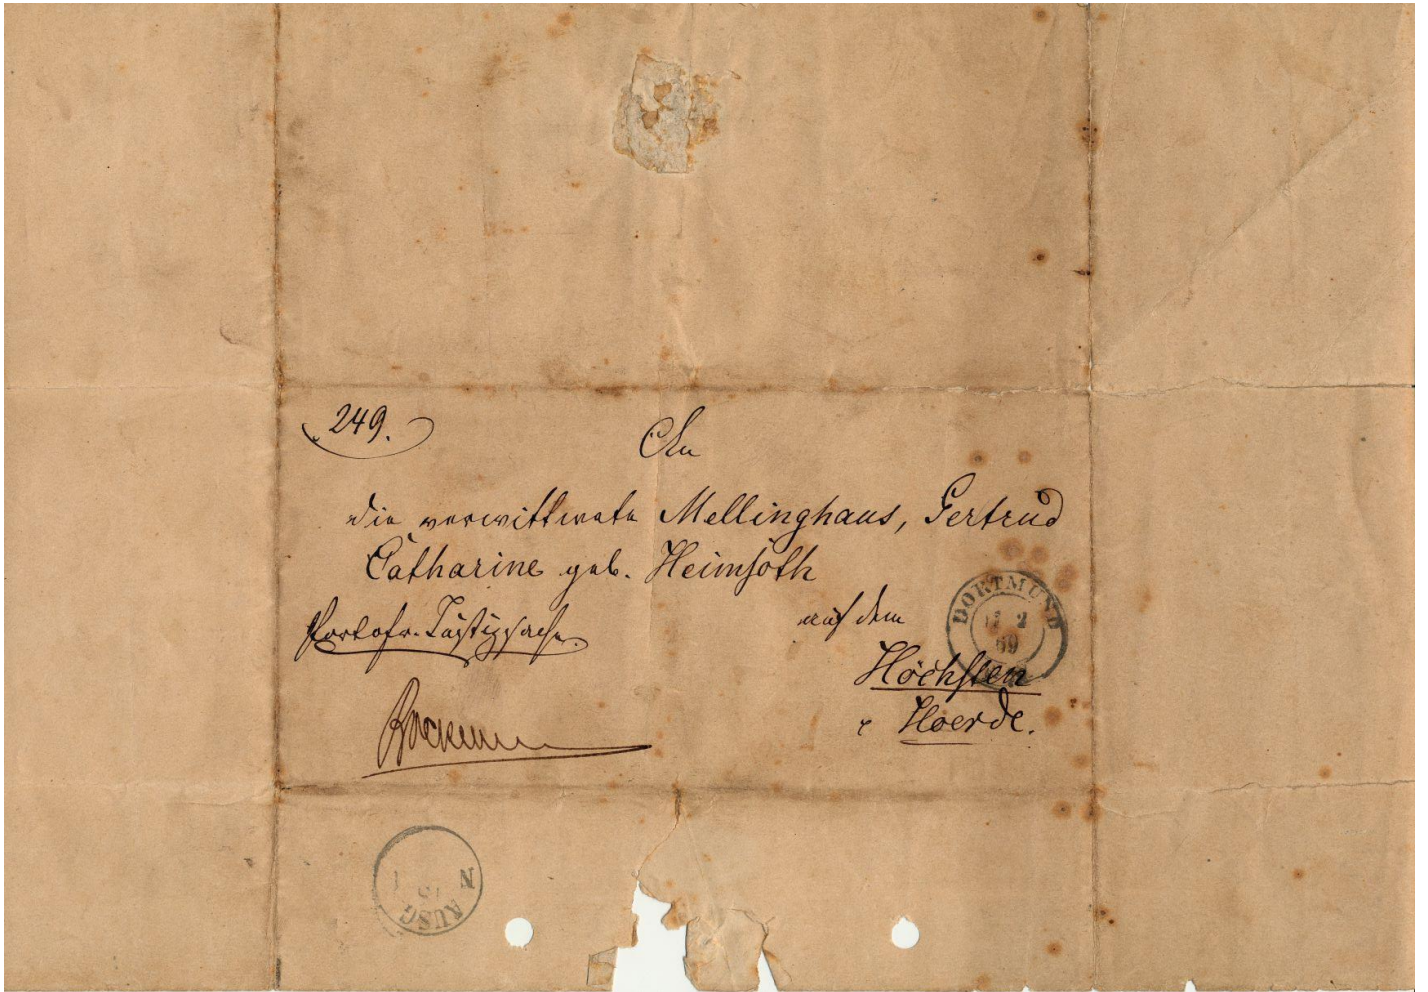 249.
An
die verwittwete Mellinghaus, Gertrud
Catharine geb. Heimsoth
Portofr. Justizsache.
auf dem
Höchsten
Hoerde.
DORTMUND
2
69
AUSG
N